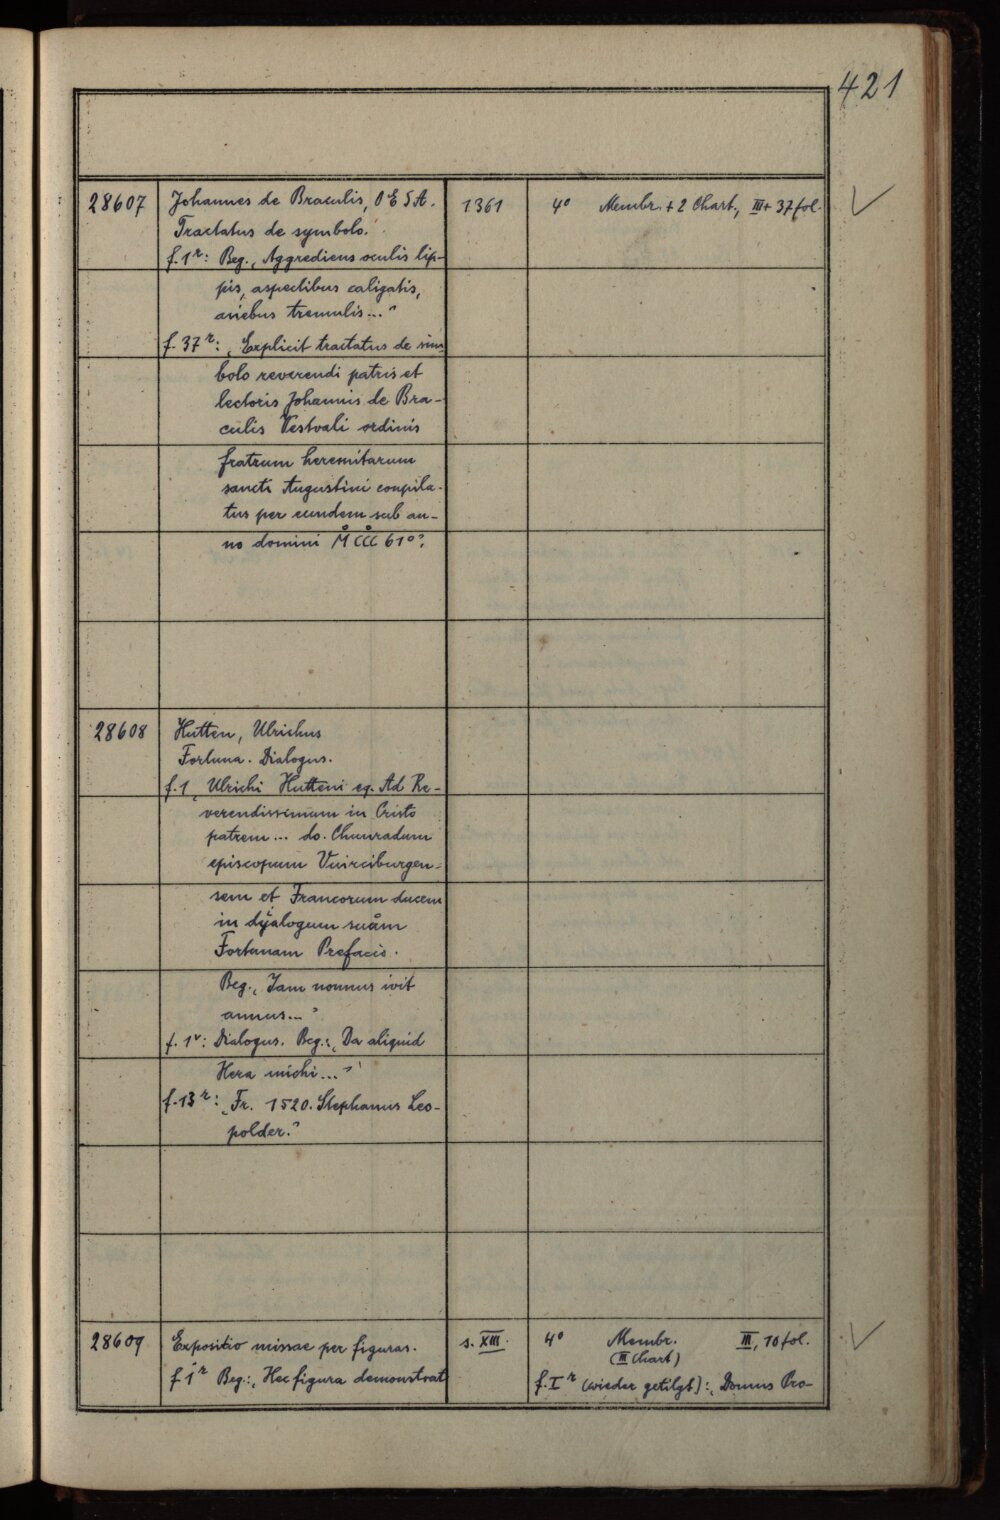 421
28607 Johannes de Braculis, OESA. 1361 4° Membr. + 2 Chart., III + 37 fol.
Tractatus de symbolo.
f. 1r: Beg. „Aggrediens oculis lip-
pis, aspectibus caligatis,
aciebus tremulis..."
f. 37r: „Explicit tractatus de sim-
bolo reverendi patris et
lectoris Johannis de Bra-
culis Vestvali ordinis
fratrum heremitarum
sancti Augustini conpila-
tus per eundem sub an-
no domini M CCC 61°".
28608 Hutten, Ulrichus
Fortuna. Dialogus.
f. 1 „Ulrichi Hutteni eq. Ad Re-
verendissimum in Cristo
patrem... do. Chunradum
episcopum Vuirciburgen-
sem et Francorum ducem
in dyalogum suam
Fortunam Prefacio.
Beg. „Iam nonnus ivit
annus..."
f. 1v: Dialogus. Beg.: „Da aliquid
Hera michi..."
f. 13r: „Fr. 1520. Stephanus Leo-
polder."
28609 Expositio missae per figuras. s. XIII. 4° Membr. III, 10 fol.
(III Chart)
f 1r Beg.: „Hec figura demonstrat f. Ir (wieder getilgt): „Domus Pro-